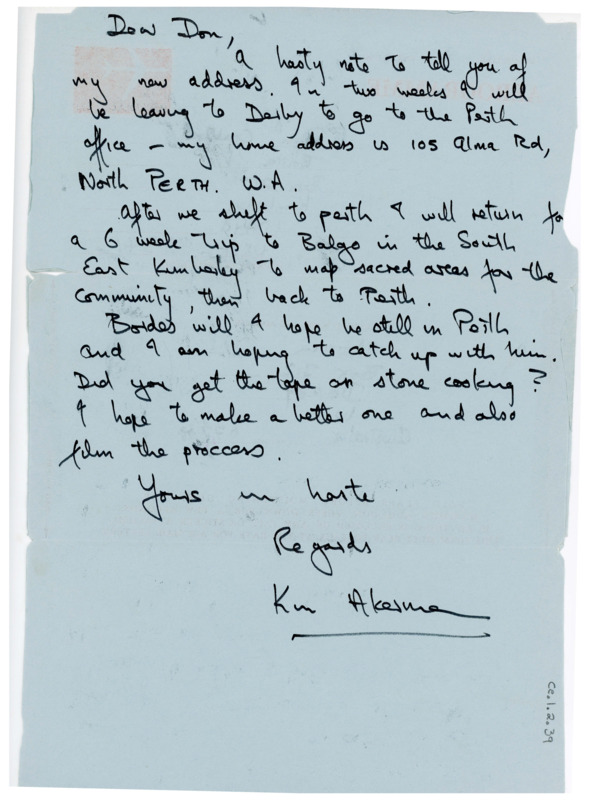 Dear Don,
A hasty note to tell you of
my new address. In two weeks I will
be leaving to Derby to go to the Perth
office - my home address is 105 Alma Rd,
North PERTH. W.A.
After we shift to perth I will return for
a 6 week trip to Balgo in the South
East Kimberley to map sacred areas for the
community, then back to Perth.
Bordes will I hope be still in Perth
and I am hoping to catch up with him.
Did you get the tape on stone cooking?
I hope to make a better one and also
film the proccess.
Yours in haste
Regards
Kim Akerman
ce.1.2.39